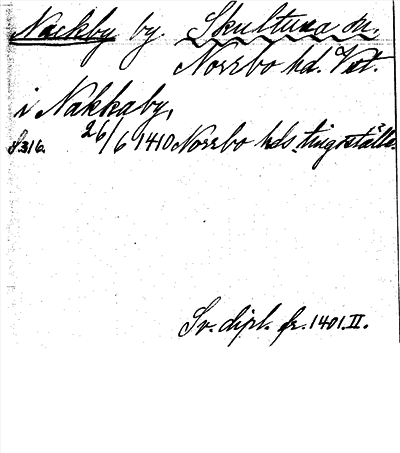 Nackby by Skultuna sn.
Norrbo hd. Vstm.
i Nakkaby,
S. 316. 26/6 1410 Norrbo hds tingställe.
Sv. dipl. fr. 1401. II.